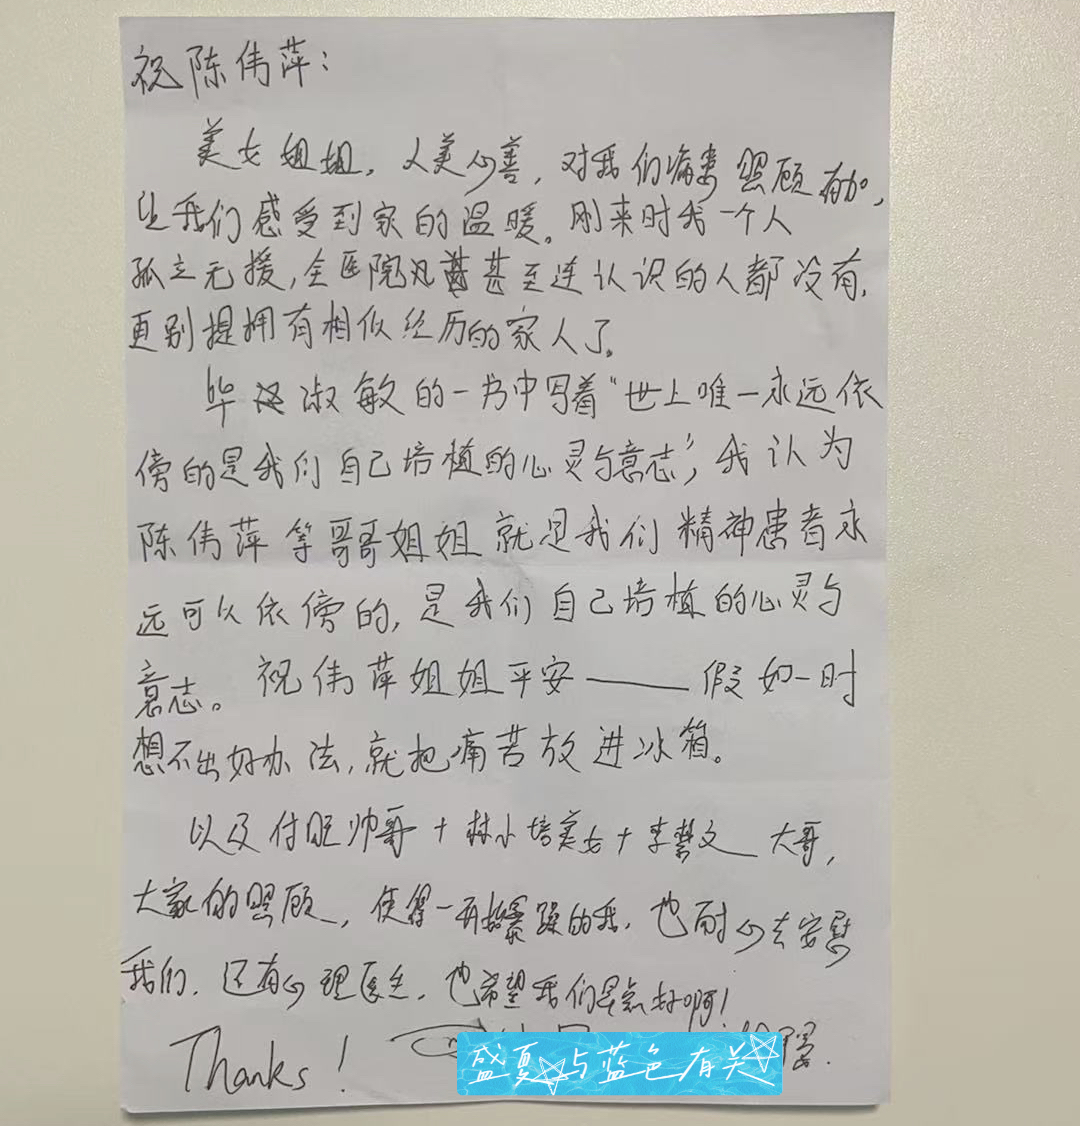 祝陈伟萍：
美女姐姐，人美心善，对我们病患照顾有加，
让我们感受到家的温暖。刚来时我一个人
孤立无援，全医院甚至连认识的人都没有，
更别提拥有相似经历的家人了。
毕淑敏的一书中写着“世上唯一永远依
傍的是我们自己培植的心灵与意志”，我认为
陈伟萍等哥哥姐姐就是我们精神患者永
远可以依傍的，是我们自己培植的心灵与
意志。祝伟萍姐姐平安——假如一时
想不出好办法，就把痛苦放进冰箱。
以及付聪帅哥+林小培美女+李慧文大哥，
大家的照顾，使得一再暴躁的我，也耐心去安慰
我们，还有心理医生，也希望我们早点好啊！
Thanks!
盛夏☆与蓝色有关☆